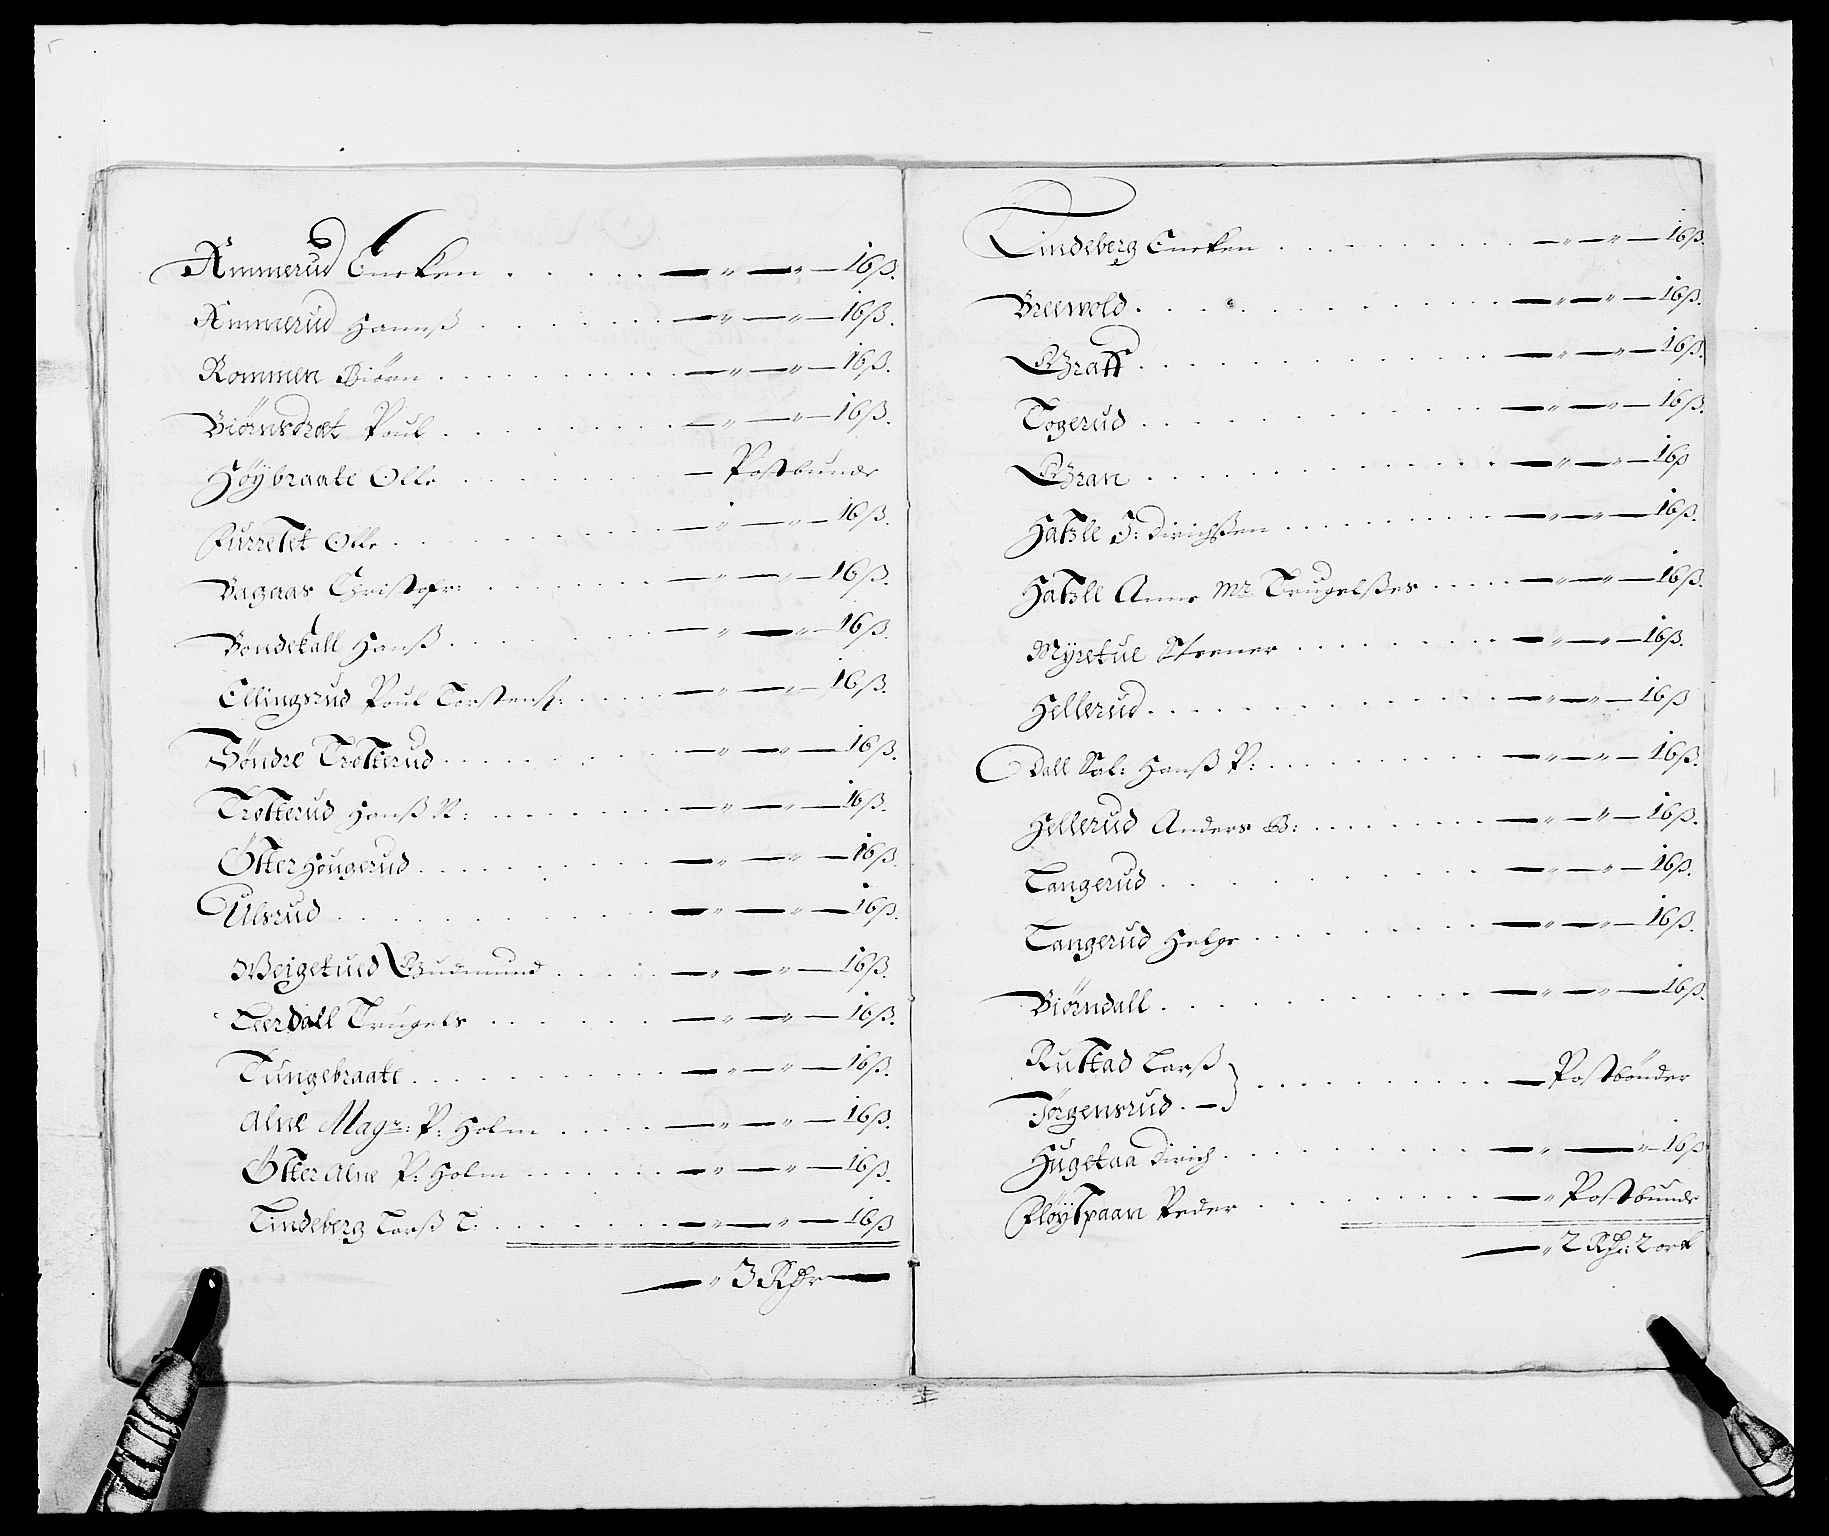 Ammerud Encken . . . . . — " — " — 16 ß.
Ammerud Hannß . . . . . — " — " — 16 ß.
Rommen Biörn . . . . . — " — " — 16 ß.
Biörnsdræt Poul . . . . . — " — " — 16 ß.
Höybraate Olle . . . . . — Postbunde
Furretet Olle . . . . . — " — " — 16 ß.
Bagaas Christofr: . . . . . — " — " — 16 ß.
Bondekall Hanß . . . . . — " — " — 16 ß.
Ellingsrud Poul Torstenß: . . . . . — " — " — 16 ß.
Söndre Trotterud . . . . . — " — " — 16 ß.
Trotterud Hanß N: . . . . . — " — " — 16 ß.
Ötter Hougerud . . . . . — " — " — 16 ß.
Ulsrud . . . . . — " — " — 16 ß.
Weigetued Gudmund . . . . . — " — " — 16 ß.
Leerdall Trugels . . . . . — " — " — 16 ß.
Tungebraate . . . . . — " — " — 16 ß.
Alne Magr: P: Holm . . . . . — " — " — 16 ß.
Ötter Alne P: Holm . . . . . — " — " — 16 ß.
Lindeberg Larß T. . . . . . — " — " — 16 ß
— " 3 Rdr —
Lindeberg Encken . . . . . — " — " — 16 ß.
Breewold . . . . . — " — " — 16 ß.
Graff . . . . . — " — " — 16 ß.
Togerud . . . . . — " — " — 16 ß.
Gran . . . . . — " — " — 16 ß
Hatzle J: Dirichßen . . . . . — " — " — 16 ß.
Hatzle Anne Mr Trugelßes . . . . . — " — " — 16 ß.
Myretue Steener . . . . . — " — " — 16 ß.
Hellerud . . . . . — " — " — 16 ß
Dall Sal: Hanß P: . . . . . — " — " — 16 ß.
Hellerud Anders G: . . . . . — " — " — 16 ß.
Tangerud . . . . . — " — " — 16 ß.
Tangerud Helge . . . . . — " — " — 16 ß.
Biörndall . . . . . — " — " — 16 ß.
Rustad Larß
} . . . . . — Postbönder
Jörgensrud . —
Hugetaa Dirich . . . . . — " — " — 16 ß
Flöyspaan Peder . . . . . — " Postbunde
— " 2 Rdr: 2 ort